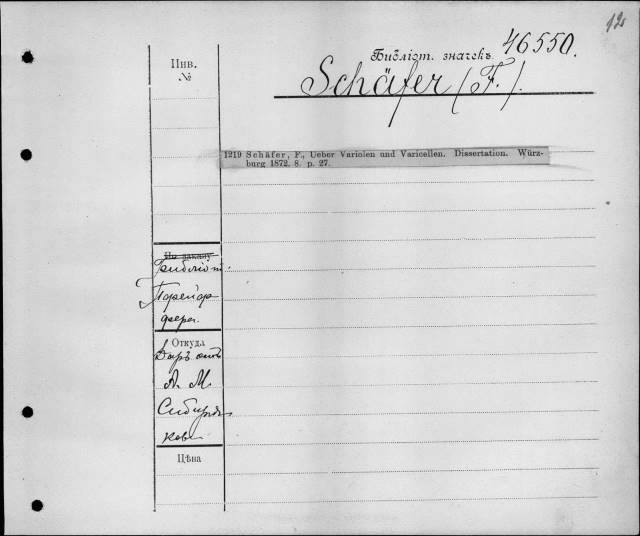 12
Библіот. значекъ 46550.
Schäfer (F.).
Инв.
№
1219 Schäfer, F., Ueber Variolen und Varicellen. Dissertation. Würz-
burg 1872. 8. p. 27.
По заказу
Библіот.
Откуда
Даръ отъ
А. М.
Сибиряко
ва
Цѣна